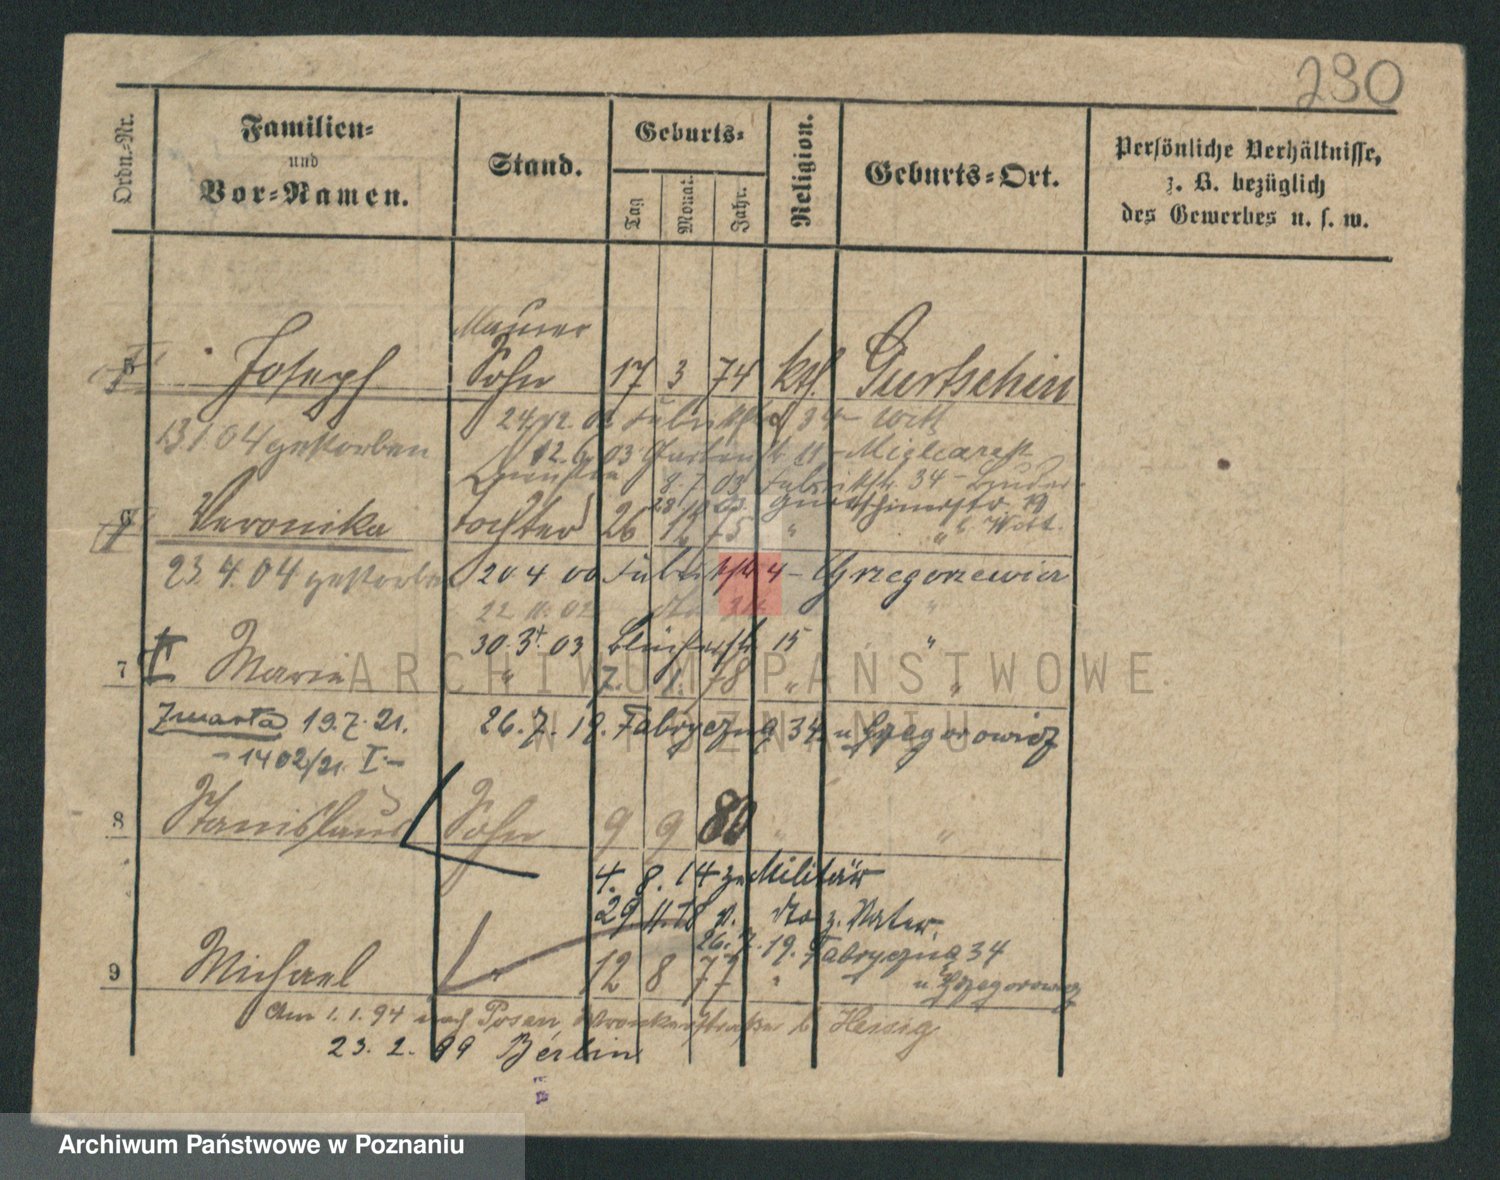 230
Ordn.-Nr.
Familien-
und
Vor-Namen.
Stand.
Geburts-
Tag
Monat.
Jahr.
Religion.
Geburts-Ort.
Persönliche Verhältnisse,
z. B. bezüglich
des Gewerbes u. s. w.
Maurer
Joseph Sohn 17 3 74 ktl. Gurtschin
24.12.02 Fabrikstr 34 - Witt
13.1.04 gestorben
12.6.03 Gartenstr 11 -
8.7.03 Fabrikstr. 34 - Bruder
28.10.03 Gurtschinerstr. 19
6 Veronika Tochter 26 12 75 " " b. Witt.
23.4.04 gestorben 20 4 00 Fabrikstr 4 - Grzegorzewicz
22.11.02 dto 34 "
30.3.03 Blücherstr 15 "
7 Marie " 7. 1. 78 " "
Zmarła 19.7.21. 26.7.19. Fabryczna 34 u Grzegorowicz
- 1402/21. I. -
8 Stanislaus Sohn 9 9 80 " "
4. 8. 14 z. Militär
29.11.18 v. dto z. Vater.
26.7.19. Fabryczna 34
u Grzegorowicz
9 Michael 12 8 77 "
Am 1.1.94 nach Posen, Wronkerstraße b. Hessig
23. 2. 99 Berlin
ARCHIWUM PAŃSTWOWE
W POZNANIU
Archiwum Państwowe w Poznaniu